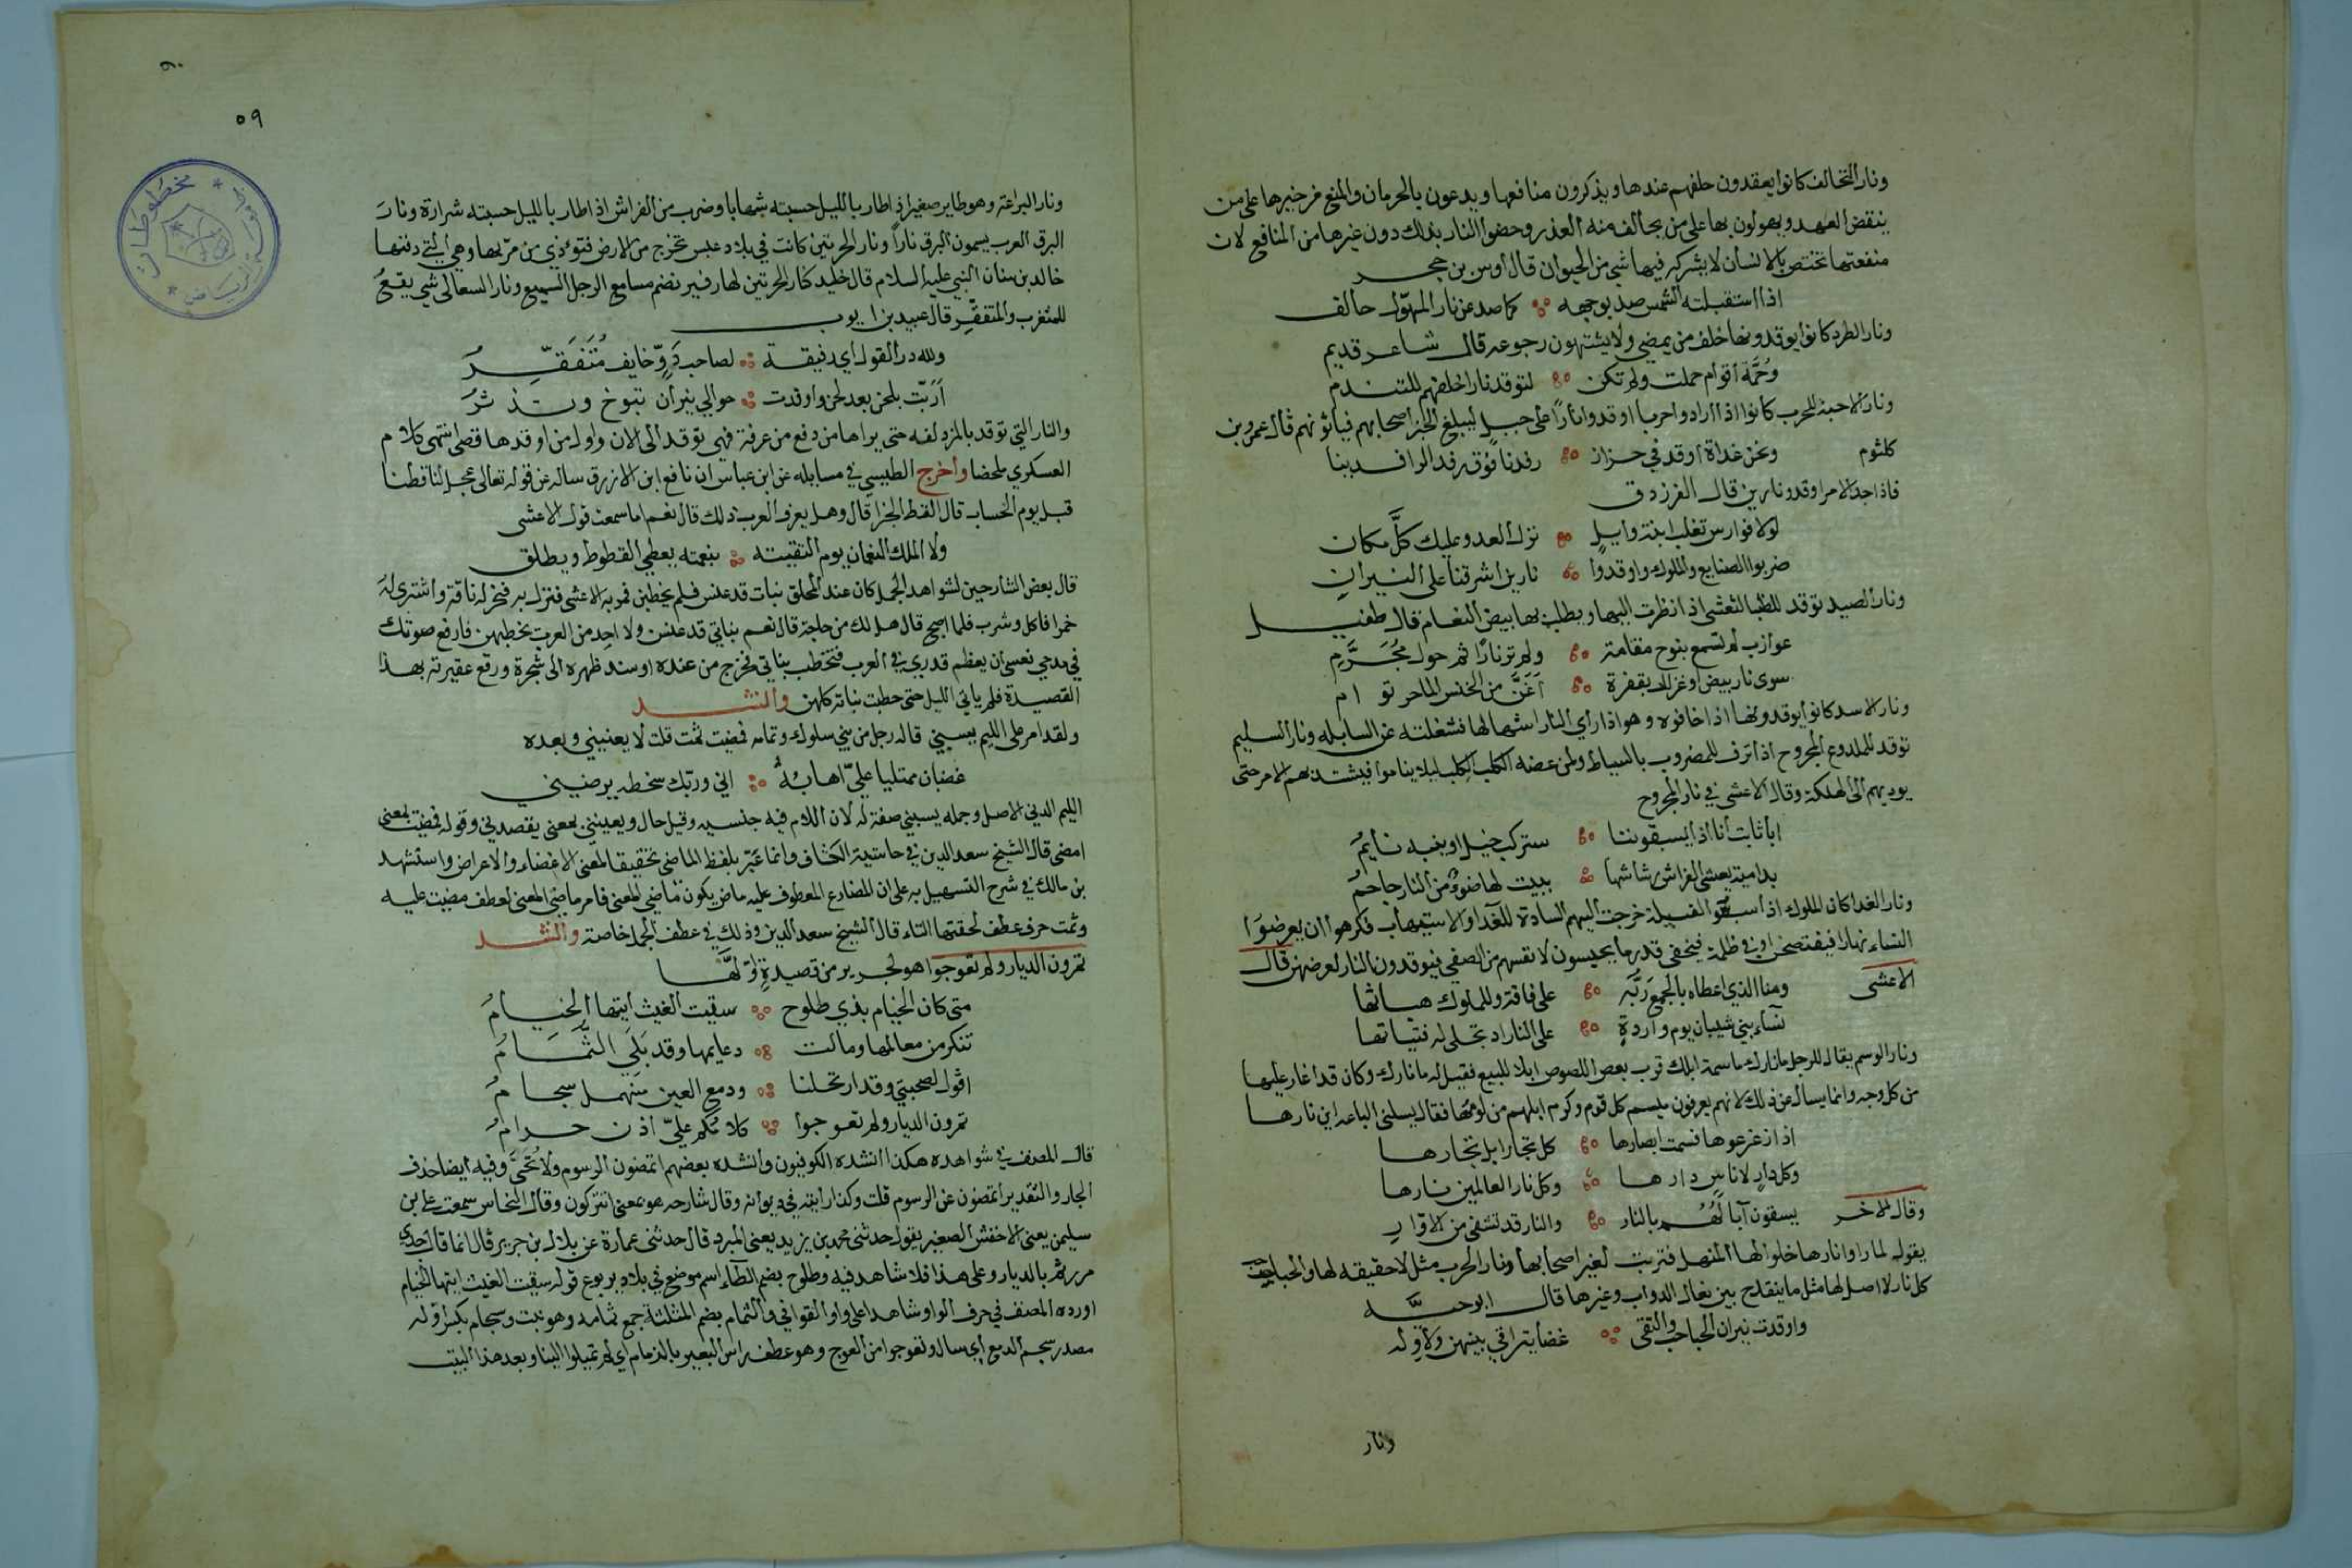 ونار التحالف كانوا يعقدون حلفهم عندها ويذكرون منافعها ويدعون بالحرمان والمنع من خيرها على من
ينقض العهد ويهولون بها على من يخالف منه الغدر وخصوا النار بذلك دون غيرها من المنافع لان
منفعتها تختص بالانسان لا يشركه فيها شي من الحيوان قال اوس بن حجر
اذا استقبلته الشمس صد بوجهه ∴ كما صد عن نار المهوّل حالف
ونار الطرد كانوا يوقدونها خلف من يمضي ولا يشتهون رجوعه قال شاعر قديم
وحُمّة اقوام حملت ولم تكن ∴ لتوقد نارا خلفهم للتندم
ونار الاهبة للحرب كانوا اذا ارادوا حربا اوقدوا نارًا على جبل ليبلغ الخبر اصحابهم فياتونهم قال عمرو بن
كلثوم ونحن غداة اوقد في خزاز ∴ رفدنا فوق رفد الرافدينا
فاذا جد الامر اوقدو نارين قال الفرزدق
لولا فوارس تغلب ابنة وايل ∴ نزل العدو عليك كلَّ مكان
ضربوا الصنايع والملوك واوقدوا ∴ نارين اشرقتا على النيران
ونار الصيد توقد للظبا لتعشى اذا نظرت اليها ويطلب بها بيض النعام قال طفيل
عوازب لم تسمع بنوح مقامة ∴ ولم تر نارًا ثم حول مُجَرَّمِ
سوى نار بيض او غزال بقفرة ∴ اَغَنَّ من الخنس المناخر توام
ونار الاسد كانوا يوقدونها اذا خافوه وهو اذا راى النار استهالها فشغلته عن السابله ونار السليم
توقد للملدوع المجروح اذا نزف للمضروب بالسياط ولمن عضه الكلب الكلب ليلا يناموا فيشتد بهم الامر حتى
يوديهم الى الهلكة وقال الاعشى في نار المجروح
ابا ثابت انا اذا يسبقوننا ∴ ستركب خيل او ينبه نايمُ
بدامية يعشى الفراش رشاشها ∴ يبيت لها ضوءٌ من النار جاحمُ
ونار الفدا كان الملوك اذا سبوا القبيلة خرجت اليهم السادة للفدا والاستيهاب فكرهوا ان يعرضوا
النساء نهارا فيفتضحن او في ظلمة فيخفى قدر ما يحبسون لانفسهم من الصفي فيوقدون النار لعرضهن قال
الاعشى ومنا الذي اعطاه بالجمع ربّه ∴ على فاقة وللملوك هباتها
نساء بني شيبان يوم واردةٍ ∴ على النار اذ تجلى له فتياتها
ونار الوسم يقال للرجل ما نارك ما سمة ابلك قرب بعض اللصوص ابلا للبيع فقيل له ما نارك وكان قد اغار عليها
من كل وجه وانما يسال عن ذلك لانهم يعرفون ميسم كل قوم وكرم ابلهم من لومها فقال يسلنى الباعة اين نارها
اذا زعزعوها فسمت ابصارها ∴ كل نجار ابل نجارها
وكل دار لاناس دارها ∴ وكل نار العالمين نارها
وقال الاخر يسقون آبالهُمُ بالنار ∴ والنار قد تشفى من الاوّارِ
يقول لما راوا نارها خلوا لها المنهل فشربت لعز اصحابها ونار الحرب مثل لا حقيقه لها والحباحب
كل نار لا اصل لها مثل ما ينقدح بين نعال الدواب وغيرها قال ابو حيّه
واوقدت نيران الحباحب والتقى ∴ غضا يتراقى بينهن ولاوله
ونار
٥٩
ونار اليراعة وهو طاير صغير اذا طار بالليل حسبته شهابا وضرب من الفراش اذا طار بالليل حسبته شرارة ونار
البرق العرب يسمون البرق نارًا ونار الحرتين كانت في بلاد عبس تخرج من الارض فتوذي من مرّ بها وهي التي دفنها
خالد بن سنان النبي عليه السلام قال خليد كنار الحرتين لها زفير تضم مسامع الرجل السميع ونار السعالى شي يقعُ
للمتغرب والمتقفّر قال عبيد بن ايوب
ولله در الغول اي رفيقة ∴ لصاحب دوّ خايف مُتَقَفِّرُ
اَرَنّت بلحن بعد لحن واوقدت ∴ حوالي نيران تبوخ وتذثرُ
والنار التي توقد بالمزدلفه حتى يراها من دفع من عرفة فهى توقد الى الان واول من اوقدها قصى انتهى كلام
العسكري ملخصا واخرج الطيبى في مسايله عن ابن عباس ان نافع ابن الازرق ساله عن قوله تعالى عجل لنا قطنا
قبل يوم الحساب قال القط الجزا قال وهل يعرف العرب ذلك قال نعم اما سمعت قول الاعشى
ولا الملك النعمان يوم التقيته ∴ بنعمته يعطى القطوط ويطلق
قال بعض الشارحين لشواهد الجمل كان عند المحلق بنات قد عنس فلم يخطبن فمر به الاعشى فنزل به فنحر له ناقة واشترى له
خمرا فاكل وشرب فلما اصبح قال هل لك من حاجة قال نعم بناتي قد عنسن ولا احد من العرب يخطبهن فارفع صوتك
في مدحي نعسى ان يعظم قدري في العرب فتخطب بناتي فخرج من عنده اوسند ظهره الى شجرة ورفع عقيرته بهذا
القصيدة فلم ياتي الليل حتى خطبت بناته كلهن وانشد
ولقد امر على الليم يسبني قاله رجل من بني سلول وتمامه فمضيت ثمت قلت لا يعنيني وبعده
غضبان ممتليا عليّ اهابهُ ∴ اني وربّك سخطه يرضيني
الليم الدني الاصل وجمله يسبني صفة له لان اللام فيه جنسيه وقيل حال ويعنيني بمعنى يقصدني وقوله فمضيت بمعنى
امضى قال الشيخ سعد الدين في حاشية الكشاف وانما عبّر بلفظ الماضى تحقيقا لمعنى الاغضاء والاعراض واستشهد
بن مالك في شرح التسهيل به على ان للمضارع المعطوف عليه ماض يكون ماضي المعنى فامر ماضى المعنى لعطف مضيت عليه
وثمت حرف عطف لحقتها التاء قال الشيخ سعد الدين وذلك في عطف الجمل خاصة وانشد
تمرون الديار ولم تعوجوا هو لجرير من قصيدةٍ اوّلها
متى كان الخيام بذي طلوح ∴ سقيت الغيث ايتها الخيامُ
تنكر من معالمها ومالت ∴ دعايمها وقد بَلَى الثُّمَامُ
اقول لصحبتي وقد ارتحلنا ∴ ودمع العين منهمل سجامُ
تمرون الديار ولم تعوجوا ∴ كلامُكم عليّ اذن حرامُ
قال المصنف في شواهده هكذا انشده الكوفيون وانشده بعضهم اتمضون الرسوم ولا تُحَيَّ وفيه ايضا حذف
الجار والتقدير اتمضون عن الرسوم قلت وكذا رايته في ديوانه وقال شارحه هو بمعنى اتتركون وقال النحاس سمعت على بن
سليمن يعنى الاخفش الصغير يقول حدثنى محمد بن يزيد يعنى المبرد قال حدثنى عمارة عن بلال بن جرير قال انما قال جدي
مررتم بالديار وعلى هذا فلا شاهد فيه وطلوح بضم الطاء اسم موضع في بلاد يربوع قوله سقيت الغيث ايتها الخيام
اورده المصنف في حرف الواو شاهدا على واو القوافي والثمام بضم المثلثة جمع ثمامه وهو نبت وسجام بكسر اوله
مصدر سجم الدمع اي سال وتعوجوا من العوج وهو عطف راس البعير بالزمام اي لم تميلوا الينا وبعد هذا البيت
مخطوطات